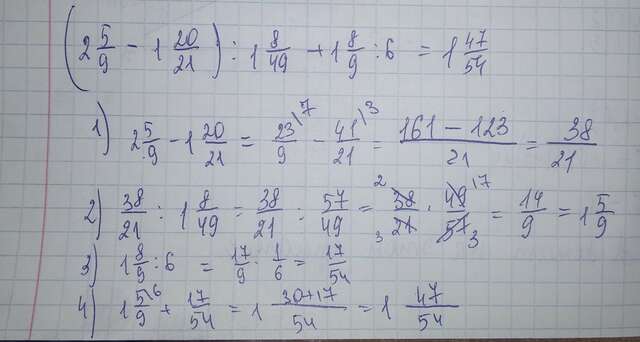 (2 5/9 - 1 20/21) : 1 8/49 + 1 8/9 : 6 = 1 47/54
1) 2 5/9 - 1 20/21 = 23/9 \7 - 41/21 \3 = 161 - 123/21 = 38/21
2) 38/21 : 1 8/49 = 38/21 : 57/49 = 2 38/3 21 · 49 17/57 3 = 14/9 = 1 5/9
3) 1 8/9 : 6 = 17/9 · 1/6 = 17/54
4) 1 5/9 \6 + 17/54 = 1 30+17/54 = 1 47/54